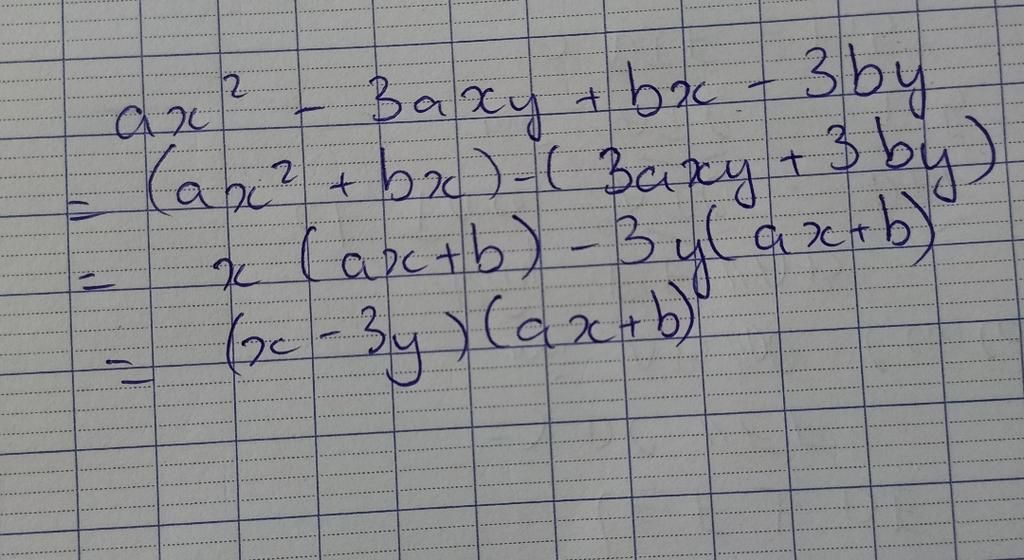 ax² - 3axy + bx - 3by
= (ax² + bx) - (3axy + 3by)
= x (ax+b) - 3y(ax+b)
= (x - 3y)(ax+b)